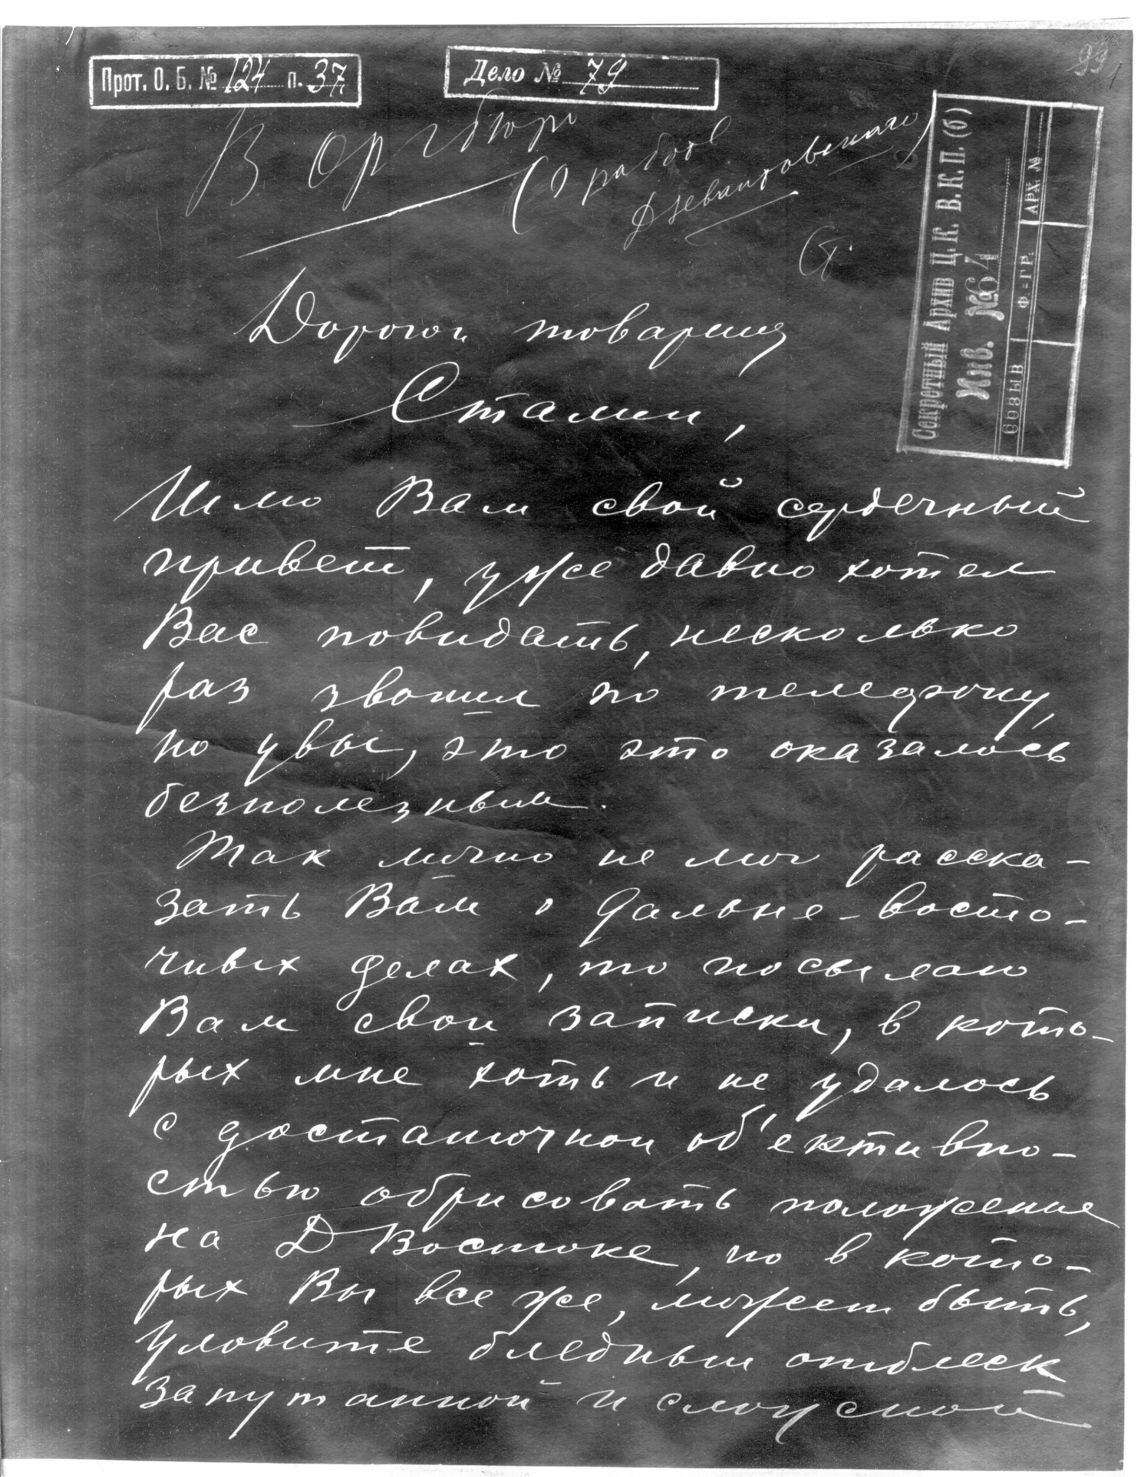 99
Прот. О. Б. № 124 п. 37
Дело № 79
В оргбюро
(о работе
Дзевалтовского)
Ст.
Секретный Архив Ц. К. В. К. П. (б)
Инв. № 64
СОЗЫВ Ф.-ГР. АРХ. №
Дорогой товарищ
Сталин,
Шлю Вам свой сердечный
привет, уже давно хотел
Вас повидать, несколько
раз звонил по телефону,
но увы, это это оказалось
безполезным.
Так лично не мог расска-
зать Вам о дальне-восто-
чных делах, то посылаю
Вам свои записки, в кото-
рых мне хоть и не удалось
с достаточной об'ективно-
стью обрисовать положение
на ДВостоке, но в кото-
рых Вы все же, может быть,
уловите бледный отблеск
запутанной и сложной